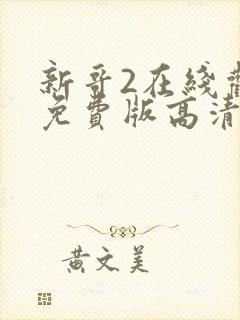 新哥2在綫觀
免費版高清
黃文美